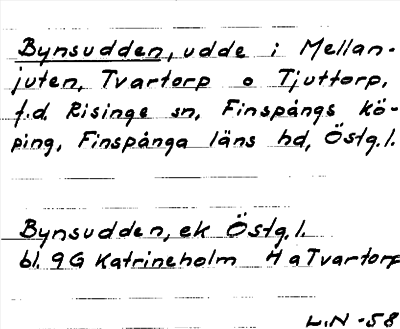 Bynsudden, udde i Mellan-
juten, Tvartorp o Tjuttorp,
f.d. Risinge sn, Finspångs kö-
ping, Finspånga läns hd, Östg.l.
Bynsudden, ek Östg.l.
bl. 9G Katrineholm H a Tvartorp
L.N -58